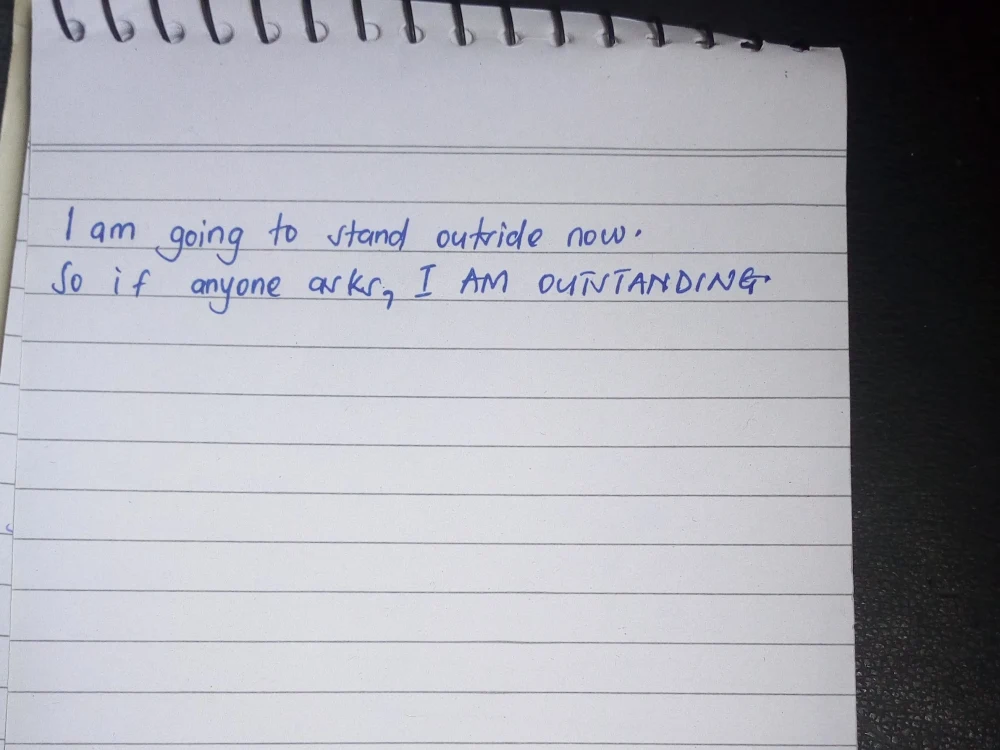 I am going to stand outside now.
So if anyone asks, I AM OUTSTANDING.